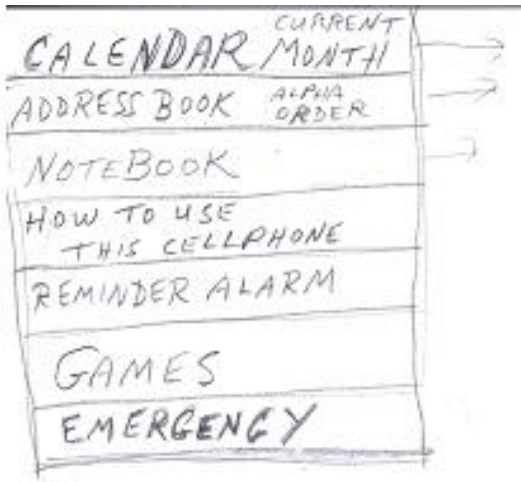 CALENDAR CURRENT MONTH
ADDRESS BOOK ALPHA ORDER
NOTEBOOK
HOW TO USE
THIS CELLPHONE
REMINDER ALARM
GAMES
EMERGENCY